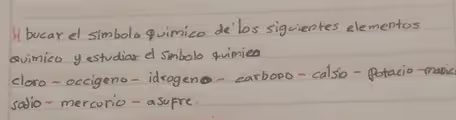 bucar el simbolo quimico de los siguientes elementos
quimico y estudiar el simbolo quimico
cloro - occigeno - idrogeno - carbono - calsio - potacio -
sodio - mercurio - asufre.